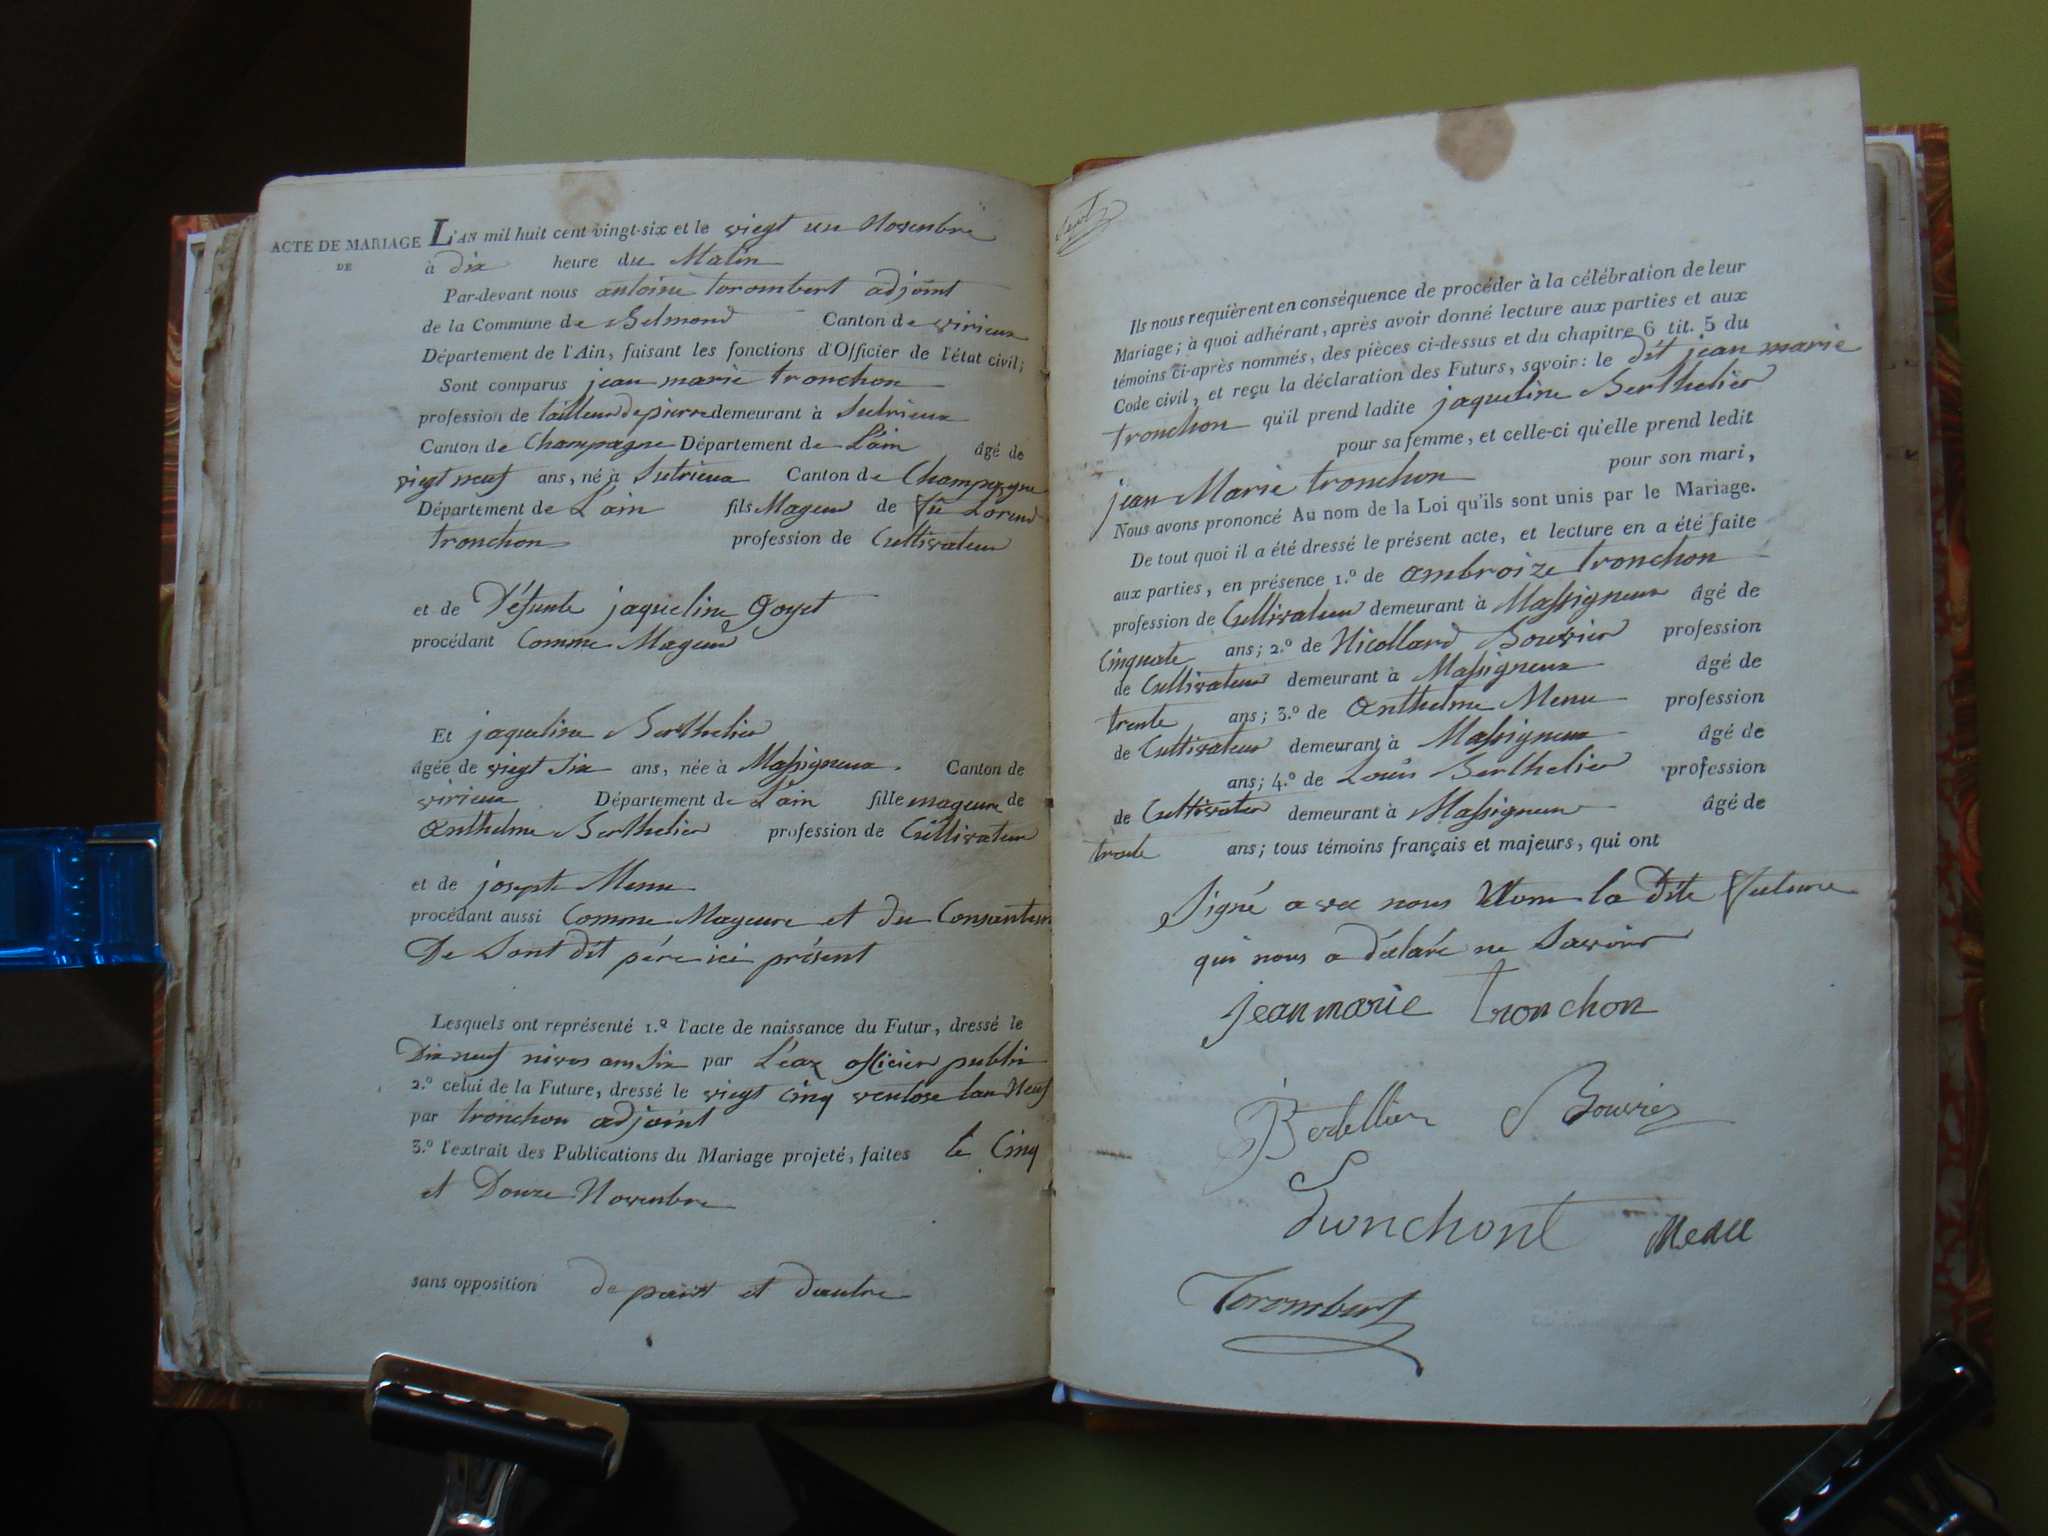 ACTE DE MARIAGE
DE
L'AN mil huit cent vingt-six et le viegt un Novembre
à dix heure du Matin
Par-devant nous antoine torombert adjoint
de la Commune de Belmond Canton de virieux
Département de l'Ain, faisant les fonctions d'Officier de l'état civil;
Sont comparus jean marie tronchon
profession de tailleur de pierre demeurant à Sutrieux
Canton de Champagne Département de L'ain âgé de
viegt neuf ans, né à Sutrieux Canton de Champagne
Département de L'ain fils Mageur de fû Lorend
tronchon profession de Cultivateur
et de Défunte jaqueline Goyet
procédant Comme Mageur
Et jaqueline Berthelier
âgée de viegt Six ans, née à Massigneux. Canton de
virieux Département de L'ain fille mageure de
Anthelme Berthelier profession de Cultivateur
et de joseph Menu
procédant aussi Comme Mageure et du Consantem
De Sont dit pére ici présent
Lesquels ont représenté 1.º l'acte de naissance du Futur, dressé le
Dix neuf nivos an Six par officier public
2.º celui de la Future, dressé le viegt cinq ventose lan Neuf
par tronchon adjoint
3.º l'extrait des Publications du Mariage projeté, faites le Cinq
et Douze Novembre
sans opposition de part et dautre
Ils nous requièrent en conséquence de procéder à la célébration de leur
Mariage; à quoi adhérant, après avoir donné lecture aux parties et aux
témoins ci-après nommés, des pièces ci-dessus et du chapitre 6 tit. 5 du
Code civil, et reçu la déclaration des Futurs, savoir: le dit jean marie
tronchon qu'il prend ladite jaqueline Berthelier
pour sa femme, et celle-ci qu'elle prend ledit
jean Marie tronchon pour son mari,
Nous avons prononcé Au nom de la Loi qu'ils sont unis par le Mariage.
De tout quoi il a été dressé le présent acte, et lecture en a été faite
aux parties, en présence 1.º de ambroize tronchon
profession de Cultivateur demeurant à Massigneux âgé de
Cinquate ans; 2.º de Nicollard Bouvier profession
de Cultivateur demeurant à Massigneux âgé de
trente ans; 3.º de Anthelme Menu profession
de Cultivateur demeurant à Massigneux âgé de
ans; 4.º de Louis Berthelier profession
de Cultivater demeurant à Massigneux âgé de
trente ans; tous témoins français et majeurs, qui ont
Signé avec nous la dite future
qui nous a déclaré ne Savoir
jeanmarie tronchon
Bertellier Bouvier
tronchont Menu
Torombert